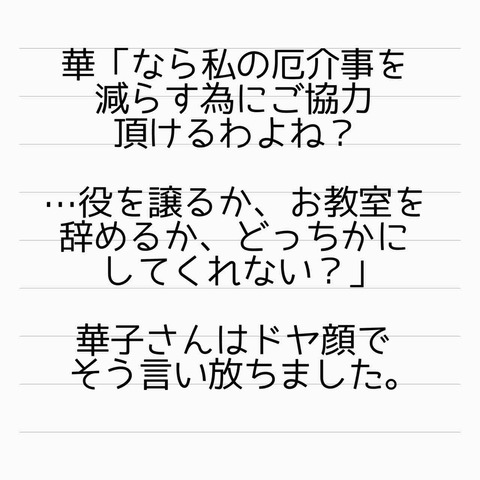 華「なら私の厄介事を
減らす為にご協力
頂けるわよね？
…役を譲るか、お教室を
辞めるか、どっちかに
してくれない？」
華子さんはドヤ顔で
そう言い放ちました。